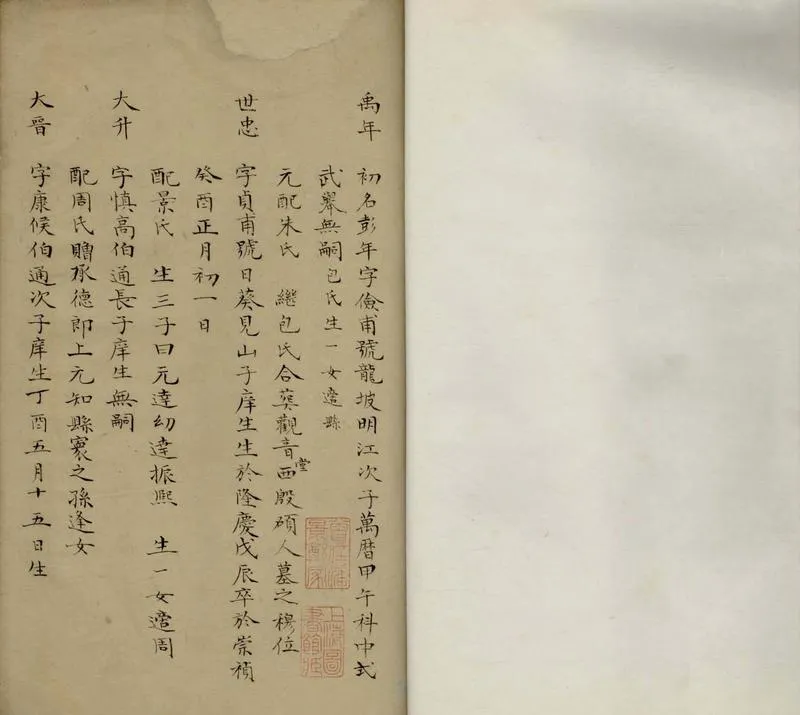 禹年 初名彭年字儉甫號龍坡明江次子萬曆甲午科中式
武舉無嗣包氏生一女適縣
元配朱氏 繼包氏合葬觀音堂西殷碩人墓之穆位
世忠 字貞甫號日葵見山子庠生生於隆慶戊辰卒於崇禎
癸酉正月初一日
配景氏 生三子曰元達幼達振熙 生一女適周
大升 字慎高伯通長子庠生無嗣
配周氏贈承德郎上元知縣寰之孫逢女
大晉 字康候伯通次子庠生丁酉五月十五日生
上海圖書館藏